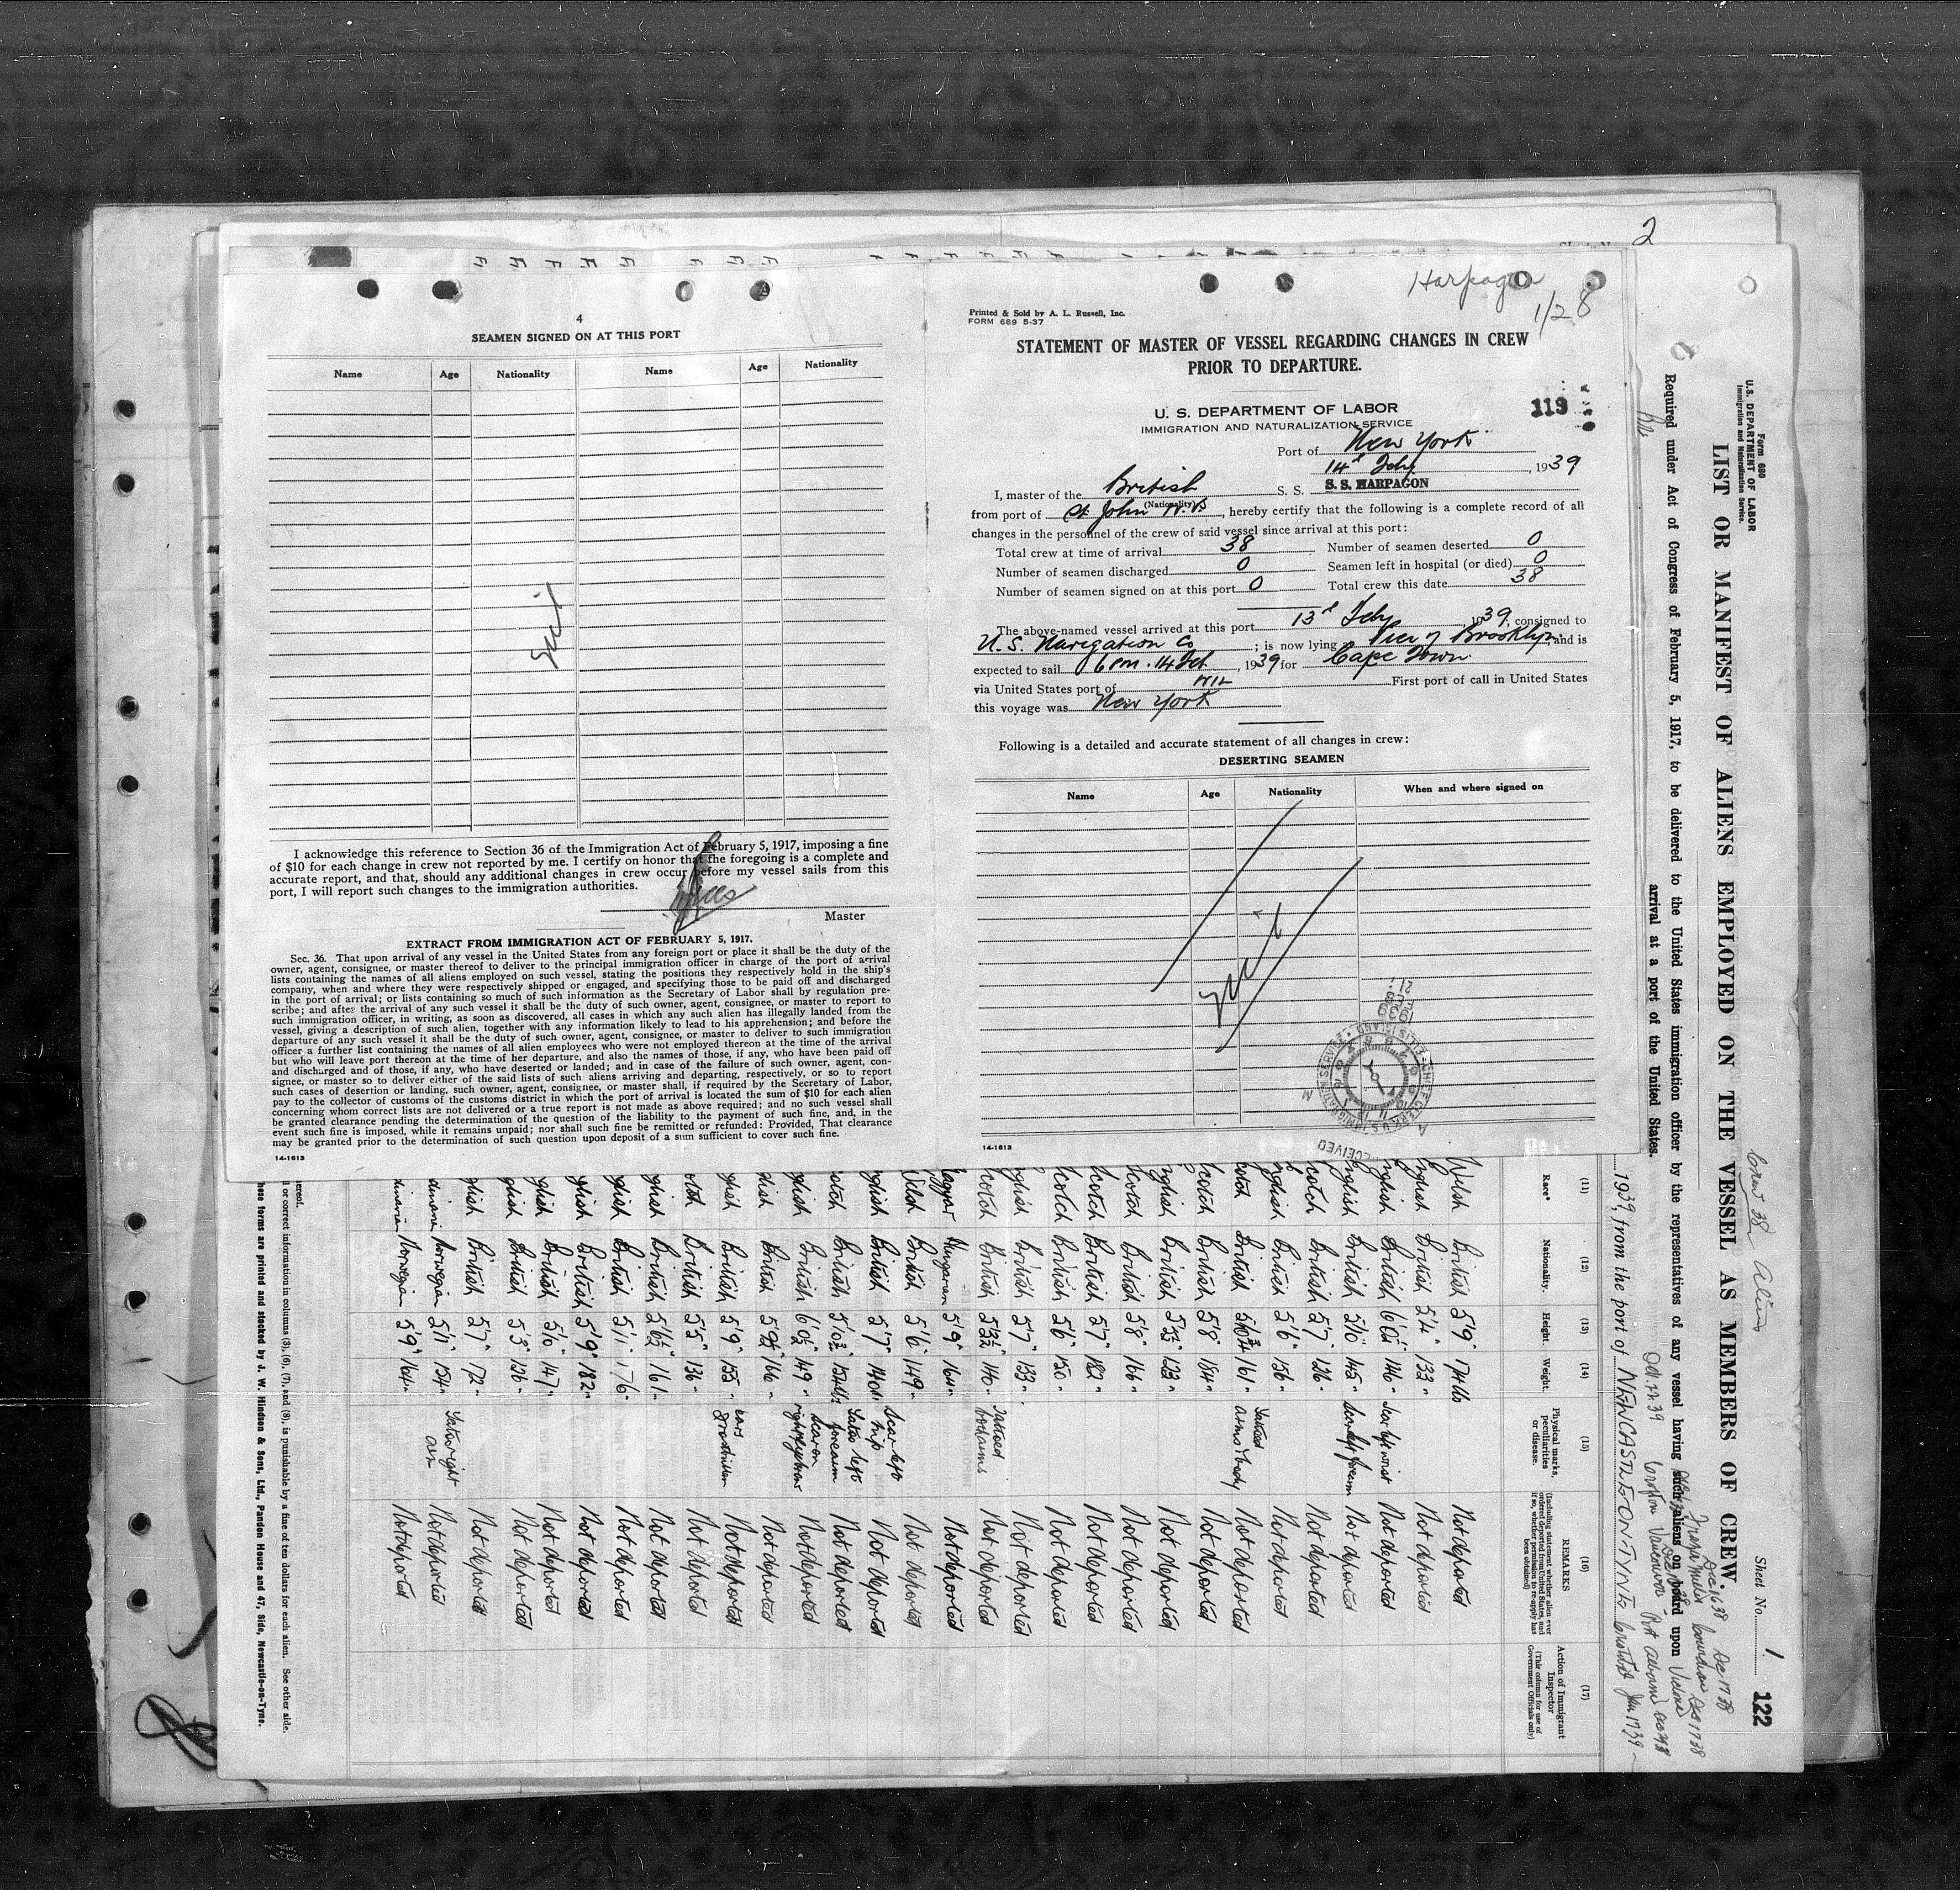 2
4
SEAMEN SIGNED ON AT THIS PORT
Name Age Nationality Name Age Nationality
I acknowledge this reference to Section 36 of the Immigration Act of February 5, 1917, imposing a fine
of $10 for each change in crew not reported by me. I certify on honor that the foregoing is a complete and
accurate report, and that, should any additional changes in crew occur before my vessel sails from this
port, I will report such changes to the immigration authorities.
Master
EXTRACT FROM IMMIGRATION ACT OF FEBRUARY 5, 1917.
Sec. 36. That upon arrival of any vessel in the United States from any foreign port or place it shall be the duty of the
owner, agent, consignee, or master thereof to deliver to the principal immigration officer in charge of the port of arrival
lists containing the names of all aliens employed on such vessel, stating the positions they respectively hold in the ship's
company, when and where they were respectively shipped or engaged, and specifying those to be paid off and discharged
in the port of arrival; or lists containing so much of such information as the Secretary of Labor shall by regulation pre-
scribe; and after the arrival of any such vessel it shall be the duty of such owner, agent, consignee, or master to report to
such immigration officer, in writing, as soon as discovered, all cases in which any such alien has illegally landed from the
vessel, giving a description of such alien, together with any information likely to lead to his apprehension; and before the
departure of any such vessel it shall be the duty of such owner, agent, consignee, or master to deliver to such immigration
officer a further list containing the names of all alien employees who were not employed thereon at the time of the arrival
but who will leave port thereon at the time of her departure, and also the names of those, if any, who have been paid off
and discharged and of those, if any, who have deserted or landed; and in case of the failure of such owner, agent, con-
signee, or master so to deliver either of the said lists of such aliens arriving and departing, respectively, or so to report
such cases of desertion or landing, such owner, agent, consignee, or master shall, if required by the Secretary of Labor,
pay to the collector of customs of the customs district in which the port of arrival is located the sum of $10 for each alien
concerning whom correct lists are not delivered or a true report is not made as above required; and no such vessel shall
be granted clearance pending the determination of the question of the liability to the payment of such fine, and, in the
event such fine is imposed, while it remains unpaid; nor shall such fine be remitted or refunded: Provided, That clearance
may be granted prior to the determination of such question upon deposit of a sum sufficient to cover such fine.
14-1613
Harpagon
1/28
Printed & Sold by A. L. Russell, Inc.
FORM 689 5-37
STATEMENT OF MASTER OF VESSEL REGARDING CHANGES IN CREW
PRIOR TO DEPARTURE.
119
U. S. DEPARTMENT OF LABOR
IMMIGRATION AND NATURALIZATION SERVICE
Port of New York
14th Feby, 1939
I, master of the British S. S. S.S. HARPAGON
(Nationality)
from port of St John N.B, hereby certify that the following is a complete record of all
changes in the personnel of the crew of said vessel since arrival at this port:
Total crew at time of arrival 38 Number of seamen deserted 0
Number of seamen discharged 0 Seamen left in hospital (or died) 0
Number of seamen signed on at this port 0 Total crew this date 38
The above-named vessel arrived at this port 13th Feby, 1939, consigned to
U.S. Navigation Co; is now lying Pier 7 Brooklyn, and is
expected to sail 6 pm. 14 Feb, 1939 for Cape Town
via United States port of Nil First port of call in United States
this voyage was New York
Following is a detailed and accurate statement of all changes in crew:
DESERTING SEAMEN
Name Age Nationality When and where signed on
Nil
1939 FEB 21
RECEIVED
14-1613
Form 680
U.S. DEPARTMENT OF LABOR
Immigration and Naturalization Service.
Crew 38 Aliens
Sheet No. 1
122
LIST OR MANIFEST OF ALIENS EMPLOYED ON THE VESSEL AS MEMBERS OF CREW.
Required under Act of Congress of February 5, 1917, to be delivered to the United States immigration officer by the representatives of any vessel having such aliens on board upon
arrival at a port of the United States.
1939, from the port of NEWCASTLE ON TYNE
(11) (12) (13) (14) (15) (16) (17)
Race* Nationality. Height. Weight. Physical marks, peculiarities or disease. REMARKS (Including statement whether alien ever ordered deported from United States, and if so, whether permission to re-apply has been obtained) Action of Immigrant Inspector (This column for use of Government Officials only)
Welsh British 5'9" 174 lb Not deported
nglish British 5'4" 133 Not deported
nglish British 146 Scar left wrist Not deported
nglish British 5'10" 145 Scar left forearm Not deported
cotch British 5'7" 126 Not deported
nglish British 5'6" 156 Not deported
cotch British 161 Tattooed arms body Not deported
cotch British 5'8" 184 Not deported
nglish British 133 Not deported
Scotch British 5'8" 166 Not deported
cotch British 5'7" 182 Not deported
cotch British 5'6" 150 Not deported
nglish British 5'7" 133 Not deported
cotch British 5'3½" 140 Tattooed both arms Not deported
Magyar Hungarian 5'9" 164 Not deported
Welsh British 5'6" 149 Not deported
nglish British 5'7" 140 Scar left hip Not deported
cotch British 154 Tattoo left forearm Not deported
nglish British 6'0½" 149 Scar on right eyebrow Not deported
glish British 5'9½" 166 Not deported
nglish British 5'9" 155 Not deported
cotch British 5'5" 136 Not deported
nglish British 5'6½" 161 Not deported
nglish British 5'11" 176 Not deported
glish British 5'9" 182 Not deported
nglish British 5'6" 147 Not deported
glish British 5'3" 126 Not deported
nglish British 5'7" 172 Not deported
dinavian Norwegian 5'11" 154 Tattoo right arm Not deported
dinavian Norwegian 5'9" 164 Not deported
ereof.
l or correct information in columns (3), (6), (7), and (8), is punishable by a fine of ten dollars for each alien. See other side.
hese forms are printed and stocked by J. W. Hindson & Sons, Ltd., Pandon House and 47, Side, Newcastle-on-Tyne.